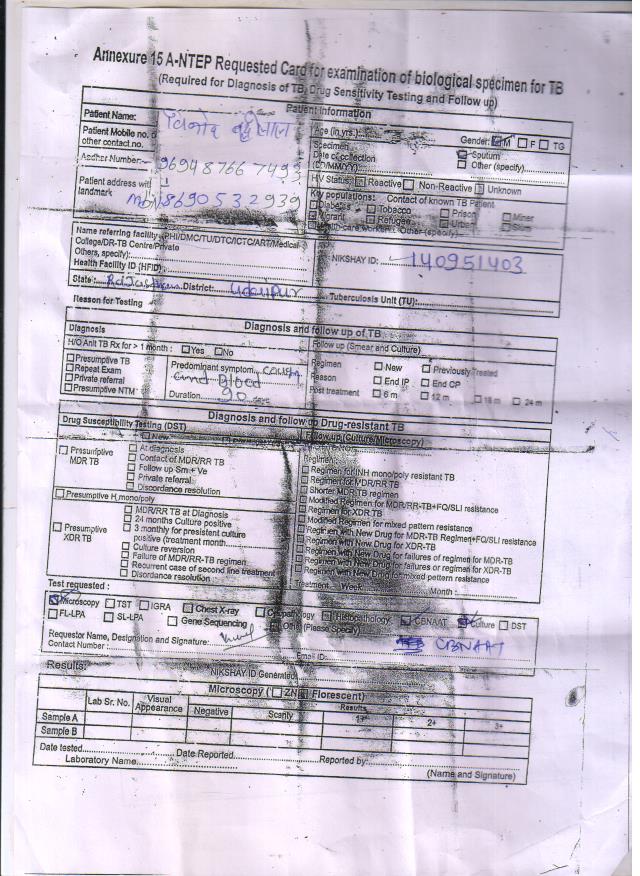 Annexure 15 A-NTEP Requested Card for examination of biological specimen for TB
(Required for Diagnosis of TB, Drug Sensitivity Testing and Follow up)
Patient Information
Patient Name:
Patient Mobile no. o
other contact no.
Aadher Number:- 96948766 7493
Patient address with
landmark
8690532939
Age (in yrs.) Gender: M F TG
Specimen Sputum
Date of collection Other (specify)
(DD/MM/YY)
HIV Status: Reactive Non-Reactive Unknown
Key populations: Contact of known TB Patient
Diabetes Tobacco Prison Miner
Migrant Refugee Urban Slum
Health-care worker Other (specify)
Name referring facility (PHI/DMC/TU/DTC/ICTC/ART/Medical
College/DR-TB Centre/Private
Others, specify):
Health Facility ID (HFID):
NIKSHAY ID: 140951403
State: Rajasthan District: Udaipur Tuberculosis Unit (TU):
Reason for Testing
Diagnosis and follow up of TB
Diagnosis
H/O Anit TB Rx for > 1 month : Yes No
Presumptive TB
Repeat Exam
Private referral
Presumptive NTM
Predominant symptom
and Blood
Duration 90 days
Follow up (Smear and Culture)
Regimen New Previously Treated
Reason End IP End CP
Post treatment 6 m 12 m 18 m 24 m
Diagnosis and follow up Drug-resistant TB
Drug Susceptibility Testing (DST)
Presumptive
MDR TB
New
At diagnosis
Contact of MDR/RR TB
Follow up Sm + Ve
Private referral
Discordance resolution
Presumptive H mono/poly
Presumptive
XDR TB
MDR/RR TB at Diagnosis
24 months Culture positive
3 monthly for presistent culture
positive (treatment month
Culture reversion
Failure of MDR/RR-TB regimen
Recurrent case of second line treatment
Disordance resolution
Follow up (Culture/Microscopy)
Regimen:
Regimen for INH mono/poly resistant TB
Regimen for MDR/RR TB
Shorter MDR TB regimen
Modified Regimen for MDR/RR-TB+FQ/SLI resistance
Regimen for XDR TB
Modified Regimen for mixed pattern resistance
Regimen with New Drug for MDR-TB Regimen+FQ/SLI resistance
Regimen with New Drug for XDR-TB
Regimen with New Drug for failures of regimen for MDR-TB
Regimen with New Drug for failures or regimen for XDR-TB
Regimen with New Drug for mixed pattern resistance
Treatment Week Month :
Test requested :
Microscopy TST IGRA Chest X-ray Cytopathology Histopathology CBNAAT Culture DST
FL-LPA SL-LPA Gene Sequencing Other (Please Specify) CBNAAT
Requestor Name, Designation and Signature:
Contact Number : Email ID:
Results: NIKSHAY ID Generated
Microscopy ( ZN Florescent)
Lab Sr. No. Visual Appearance Negative Scanty Results 1+ 2+ 3+
Sample A
Sample B
Date tested Date Reported Reported by:
Laboratory Name
(Name and Signature)